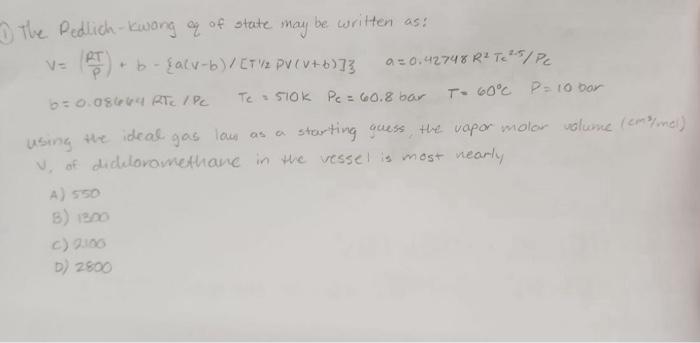 ① The Redlich-Kwong eq of state may be written as:
V = (RT/P) + b - {a(v-b)/[T^1/2 PV(V+b)]} a=0.42748 R² Tc^2.5/Pc
b=0.08664 RTc/Pc Tc = 510K Pc = 60.8 bar T= 60°C P= 10 bar
using the ideal gas law as a starting guess, the vapor molar volume (cm³/mol)
V, of dichloromethane in the vessel is most nearly
A) 550
B) 1300
C) 2100
D) 2800